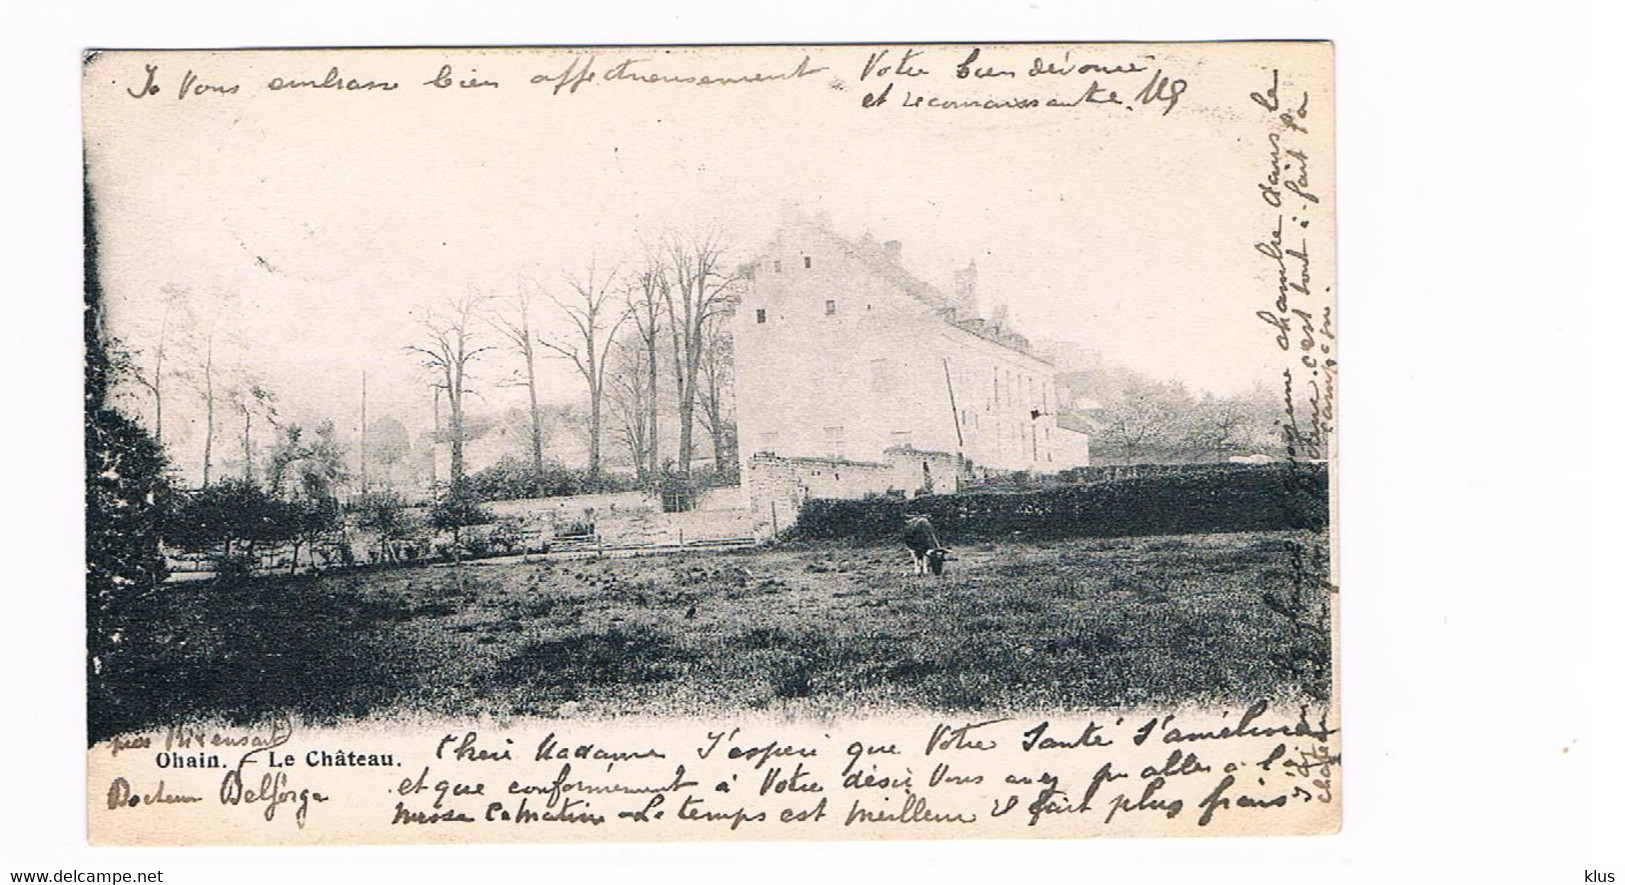 Je Vous embrasse bien affectueusement
Votre bien dévouée
et reconnaissante. MG
près Rixensart
Ohain. — Le Château.
Docteur Delforge
Chère Madame J'espère que Votre Santé S'améliore
et que conformément à Votre désir Vous avez pu aller à la
messe ce matin - Le temps est meilleur il fait plus frais
chambre dans le
c'est tout à fait la
campagne.
www.delcampe.net
klus